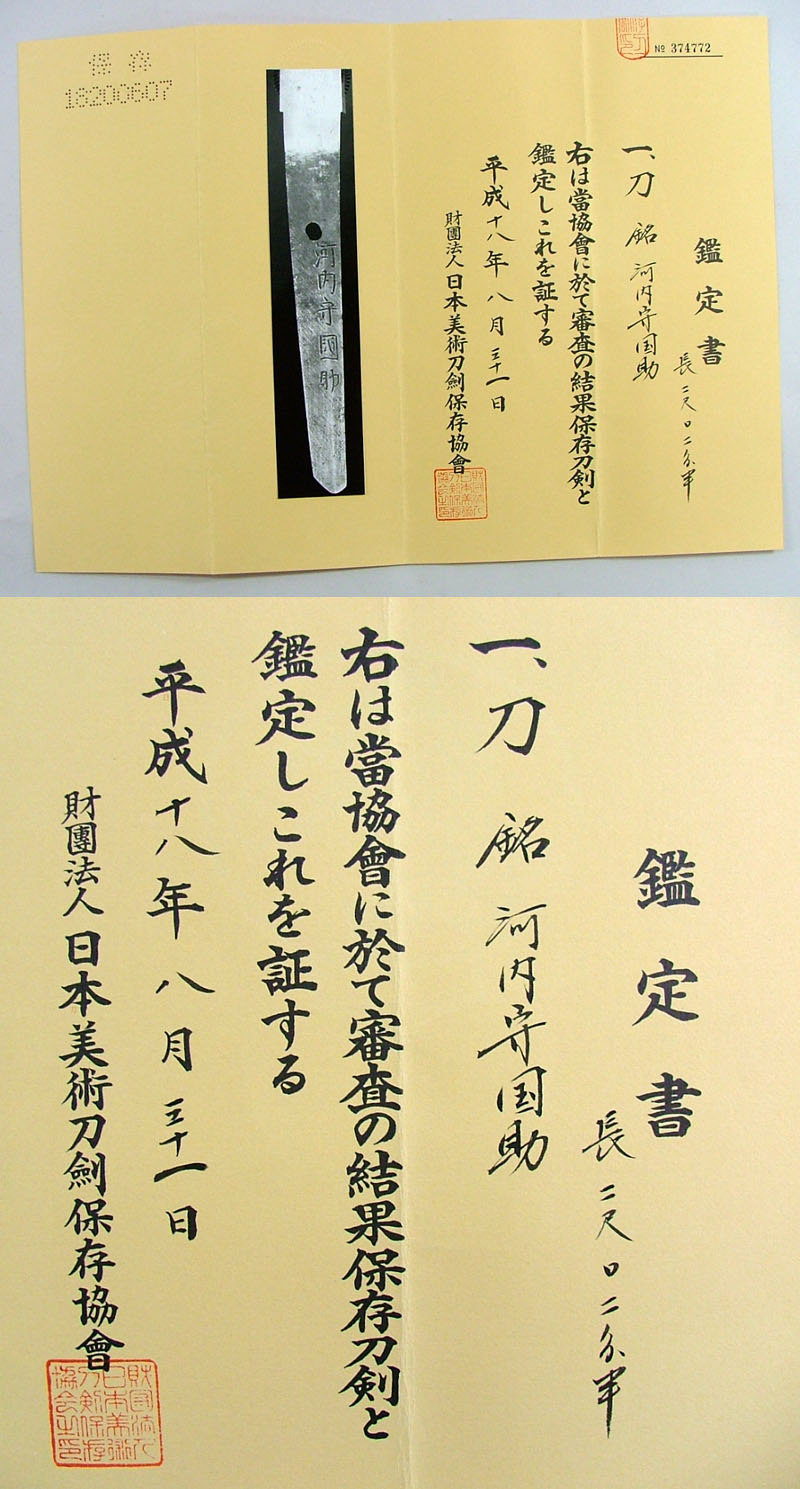 № 374772
鑑定書
長二尺〇二分半
一、刀 銘 河内守国助
右は當協會に於て審査の結果保存刀剣と
鑑定しこれを証する
平成十八年 八月 三十一日
財團法人 日本美術刀劍保存協會
河内守國助
保存
18200607
鑑定書
長二尺〇二分半
一、刀 銘 河内守国助
右は當協會に於て審査の結果保存刀剣と
鑑定しこれを証する
平成十八年 八月 三十一日
財團法人 日本美術刀劍保存協會
財団法人
日本美術
刀剣保存
協会之印